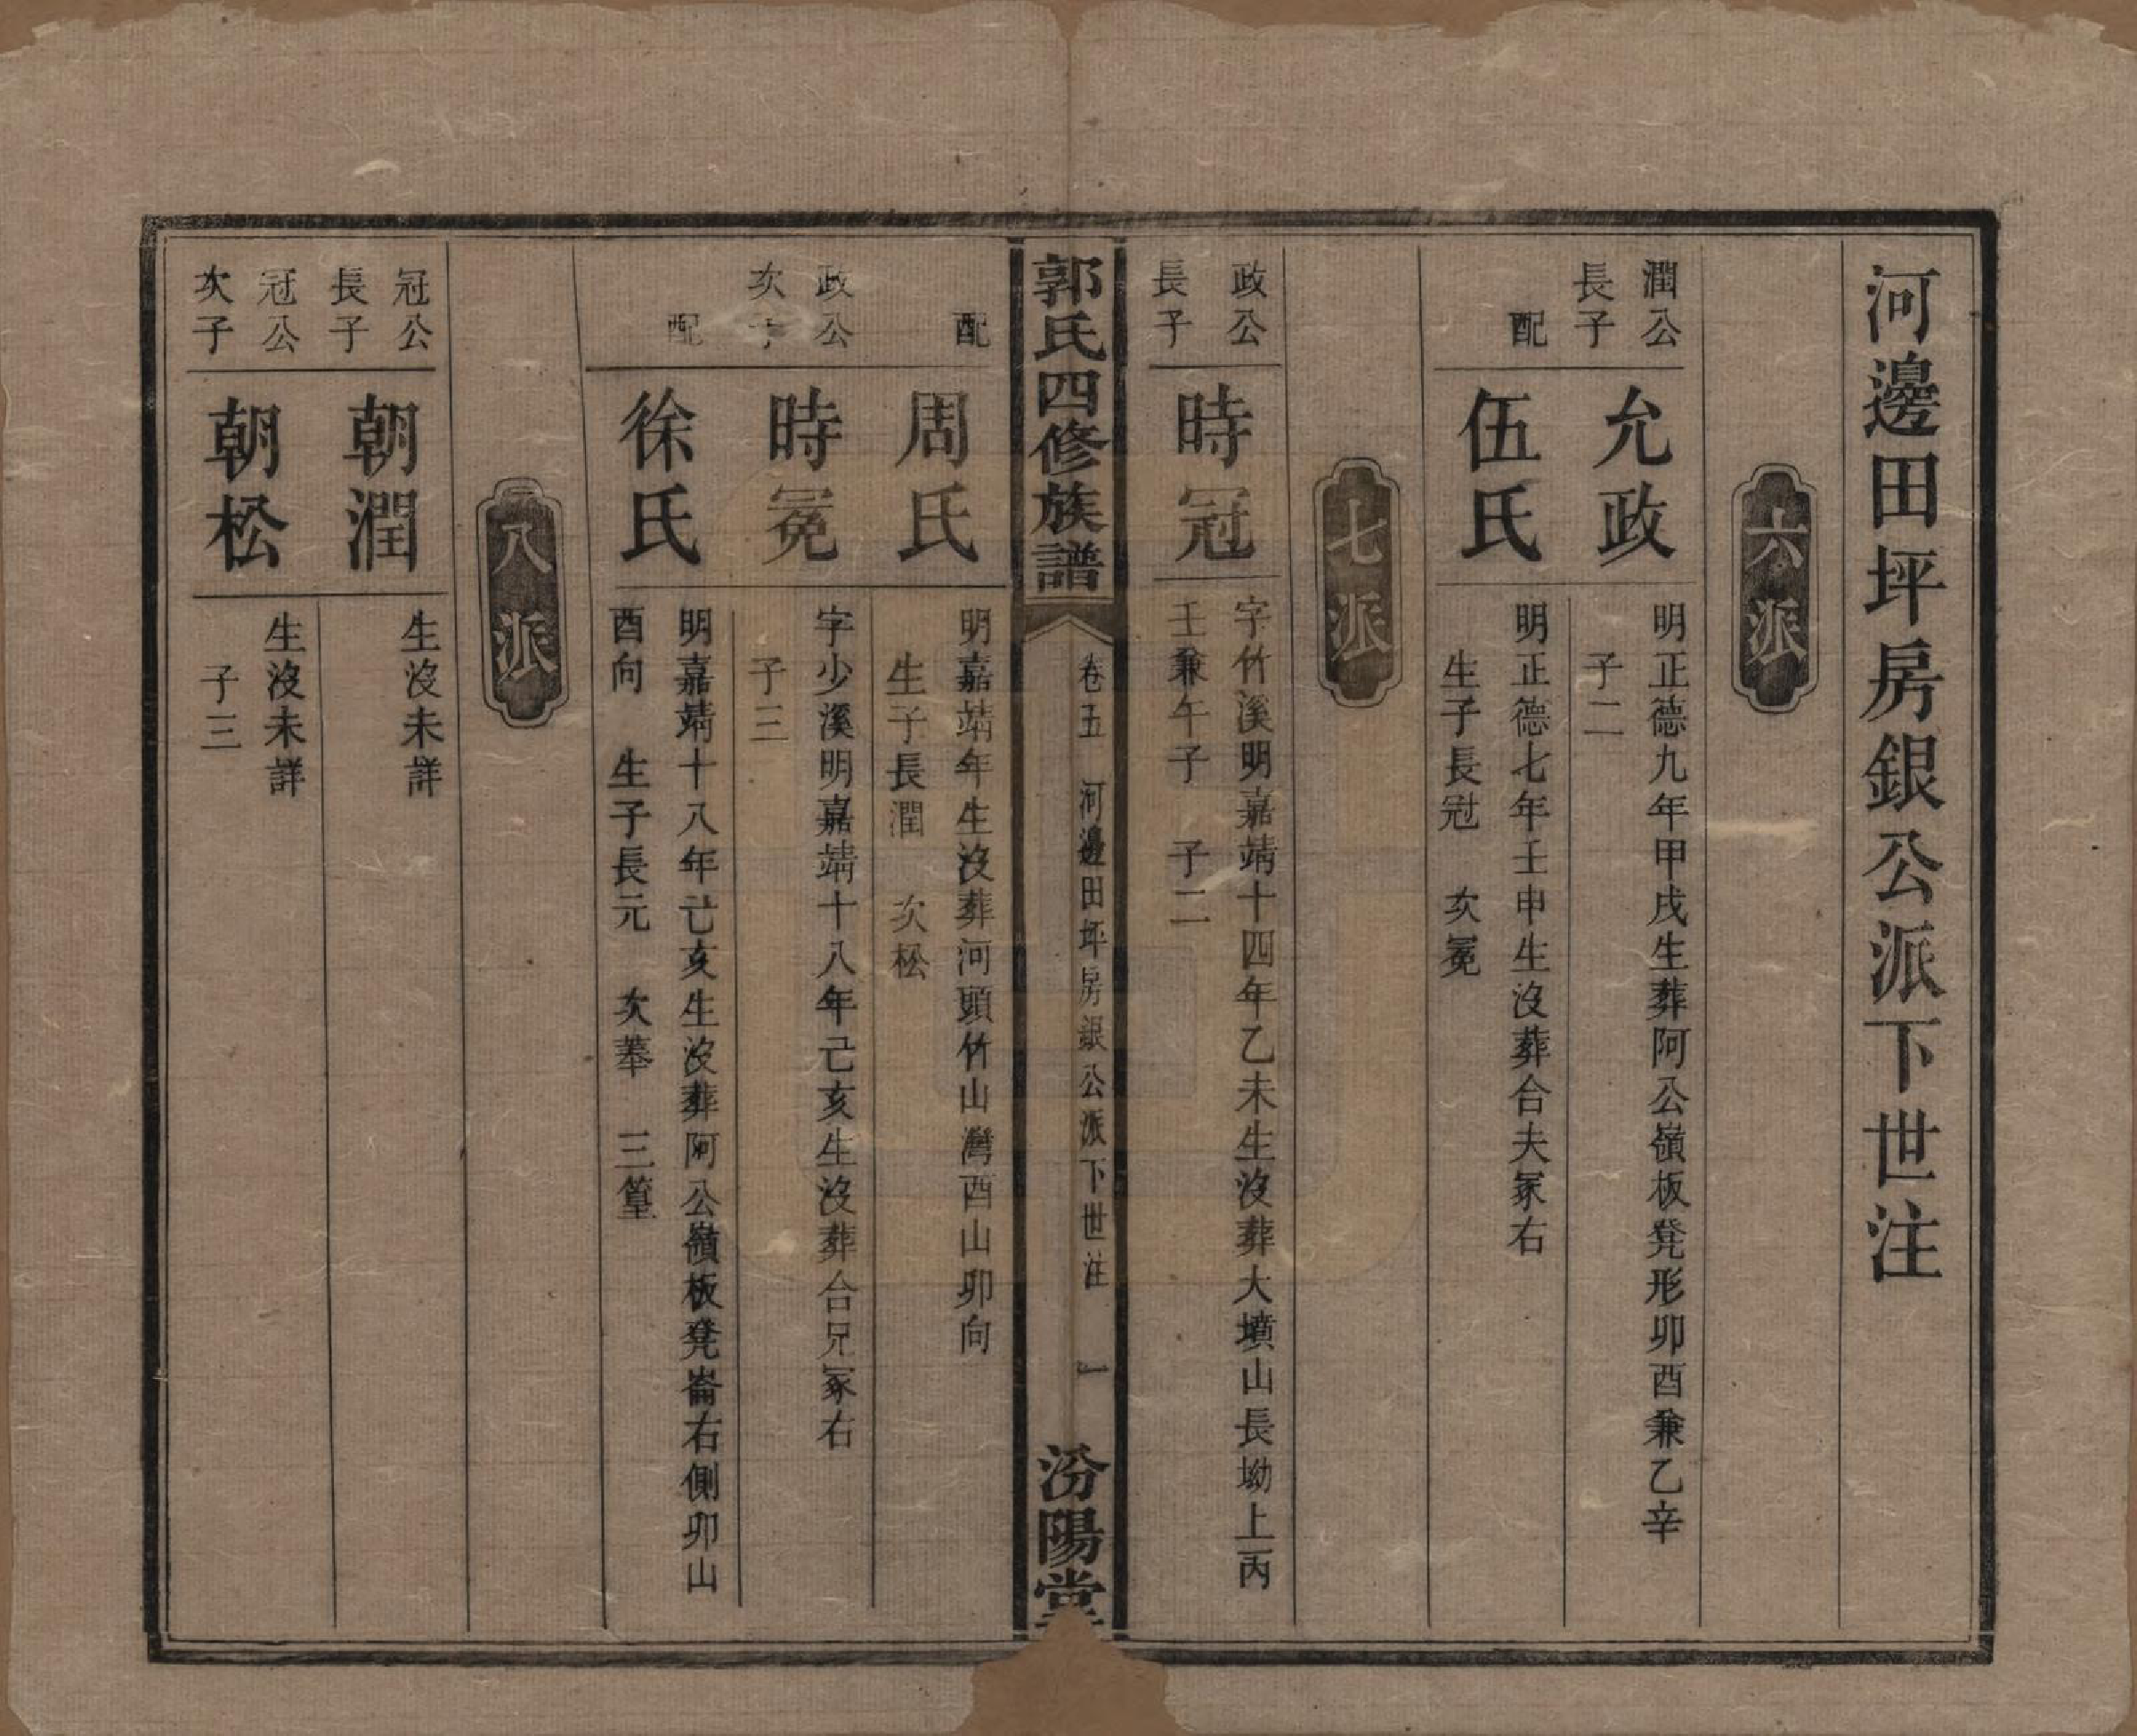 河邊田坪房銀公派下世注
六派
潤公
長子
允政
明正德九年甲戌生葬阿公嶺板凳形卯酉兼乙辛
子二
配
伍氏
明正德七年壬申生沒葬合夫冢右
生子長冠　次冕
七派
政公
長子
時冠
字竹溪明嘉靖十四年乙未生沒葬大墳山長坳上丙
壬兼午子　子二
郭氏四修族譜
卷五　河邊田坪房銀公派下世注
一
汾陽堂
配
周氏
明嘉靖年生沒葬河頭竹山灣酉山卯向
生子長潤　次松
政公
次子
時冕
字少溪明嘉靖十八年己亥生沒葬合兄冢右
子三
配
徐氏
明嘉靖十八年己亥生沒葬阿公嶺板凳崙右側卯山
酉向　生子長元　次葊　三篁
八派
冠公
長子
朝潤
生沒未詳
冠公
次子
朝松
生沒未詳
子三